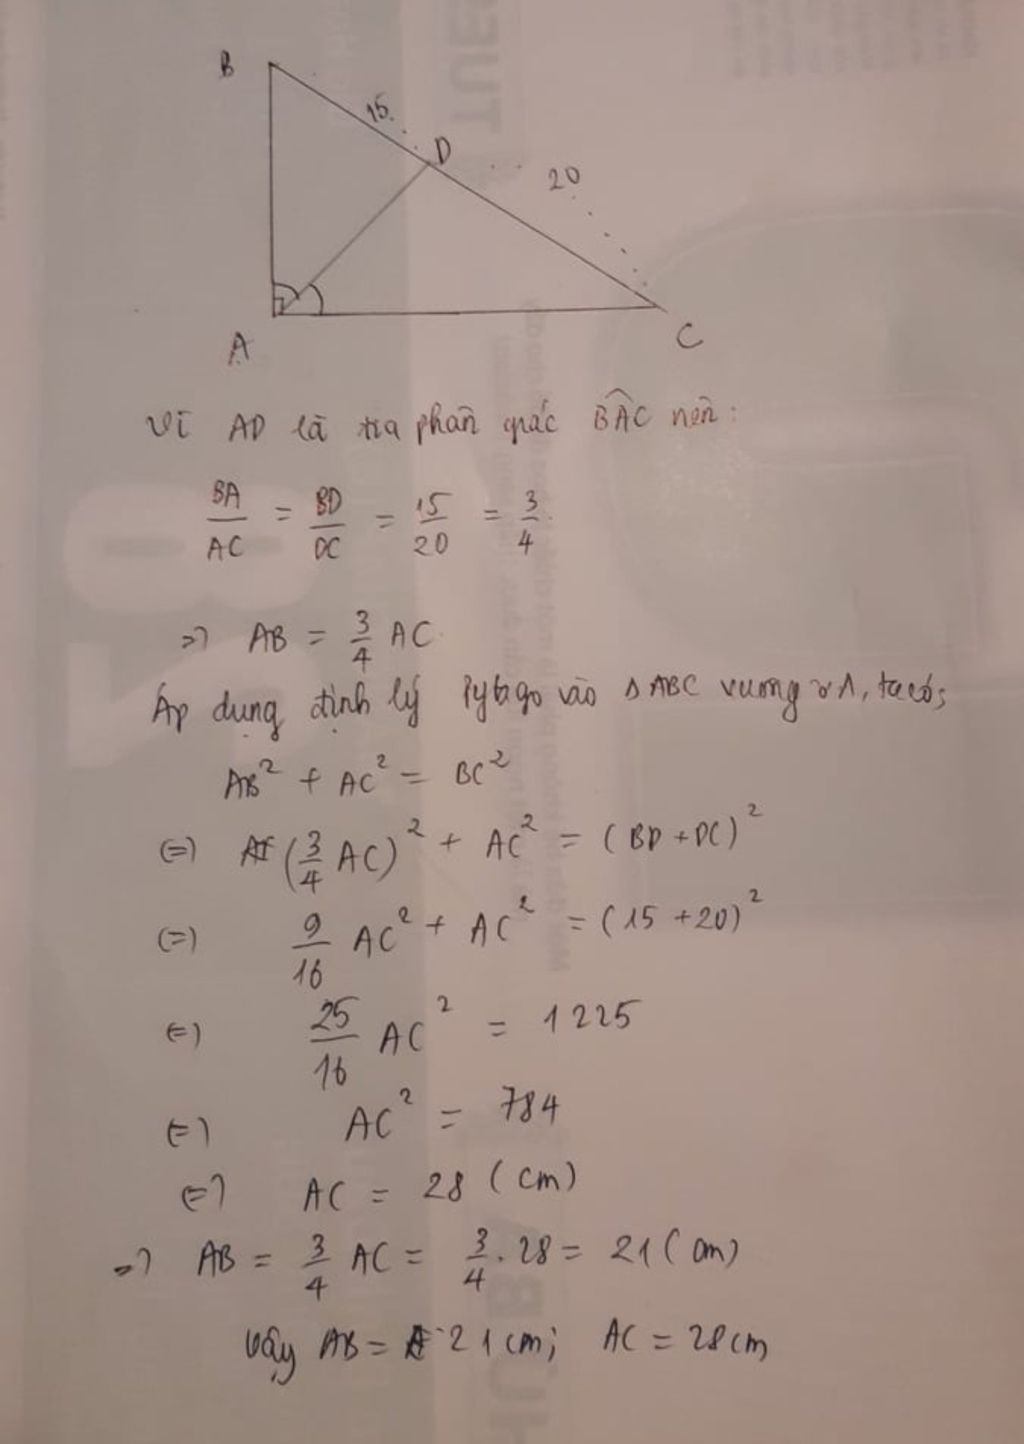 B
15
D
20
A
C
Vì AD là tia phân giác BÂC nên:
BA/AC = BD/DC = 15/20 = 3/4
=> AB = 3/4 AC
Áp dụng định lý Pytago vào ΔABC vuông ở A, ta có;
AB² + AC² = BC²
(=) (3/4 AC)² + AC² = (BD + DC)²
(=) 9/16 AC² + AC² = (15 + 20)²
(=) 25/16 AC² = 1225
(=) AC² = 784
(=) AC = 28 (cm)
=> AB = 3/4 AC = 3/4 . 28 = 21 (cm)
Vậy AB = 21 cm; AC = 28 cm